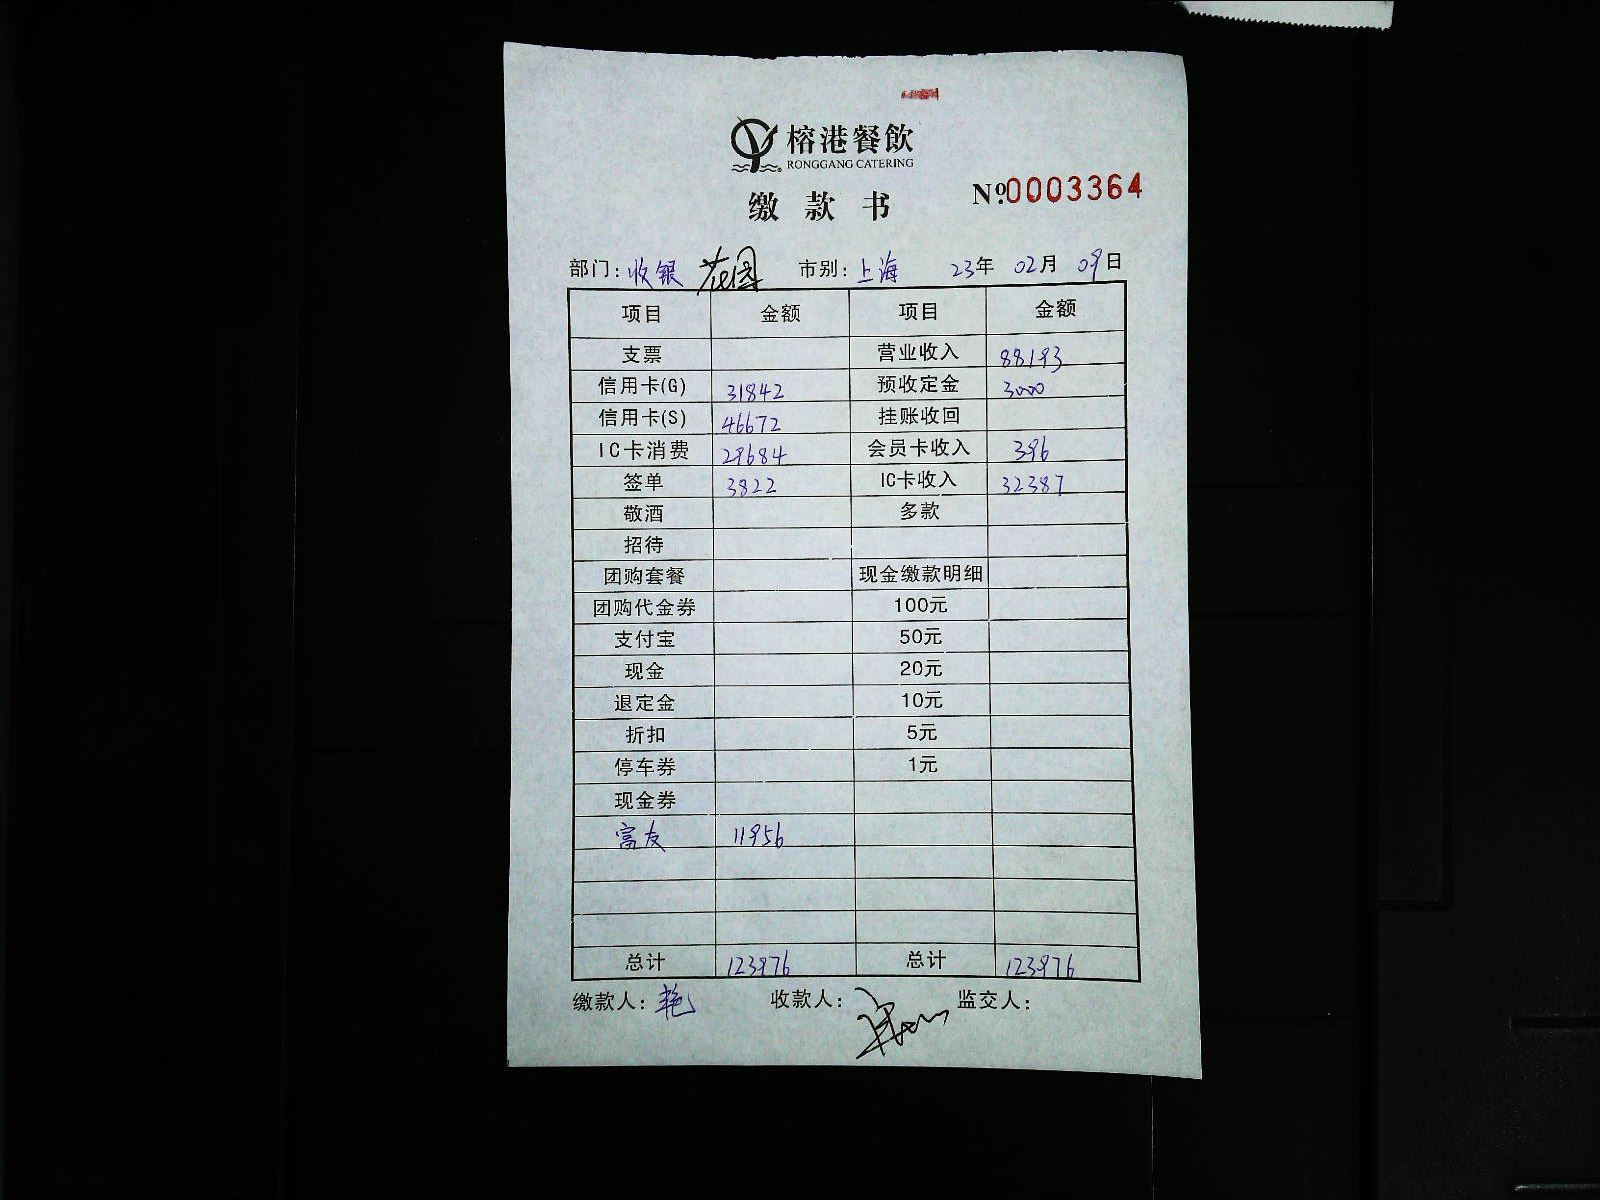 榕港餐飲
RONGGANG CATERING
缴款书
№0003364
部门：收银 花园 市别：上海 23年 02月 09日
项目 金额 项目 金额
支票 营业收入 88193
信用卡(G) 31842 预收定金 3000
信用卡(S) 46672 挂账收回
IC卡消费 29684 会员卡收入 396
签单 3822 IC卡收入 32387
敬酒 多款
招待
团购套餐 现金缴款明细
团购代金券 100元
支付宝 50元
现金 20元
退定金 10元
折扣 5元
停车券 1元
现金券
富友 11956
总计 123976 总计 123976
缴款人：艳 收款人： 监交人：